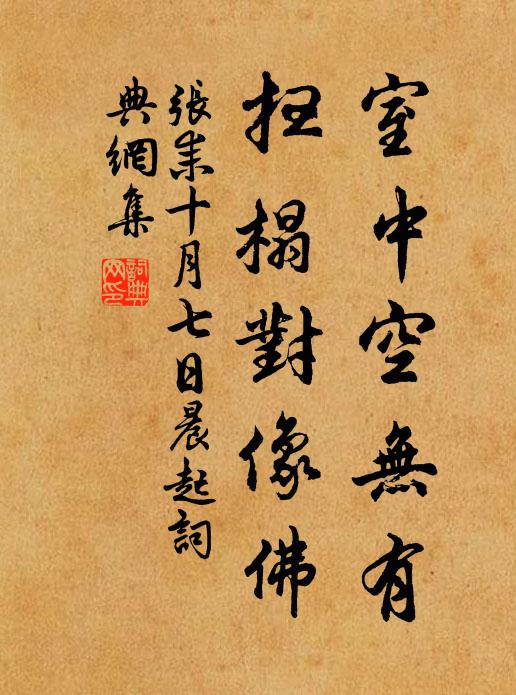 室中空無有
扫榻對像佛
張耒十月七日晨起詞
典網集
詞典
网印